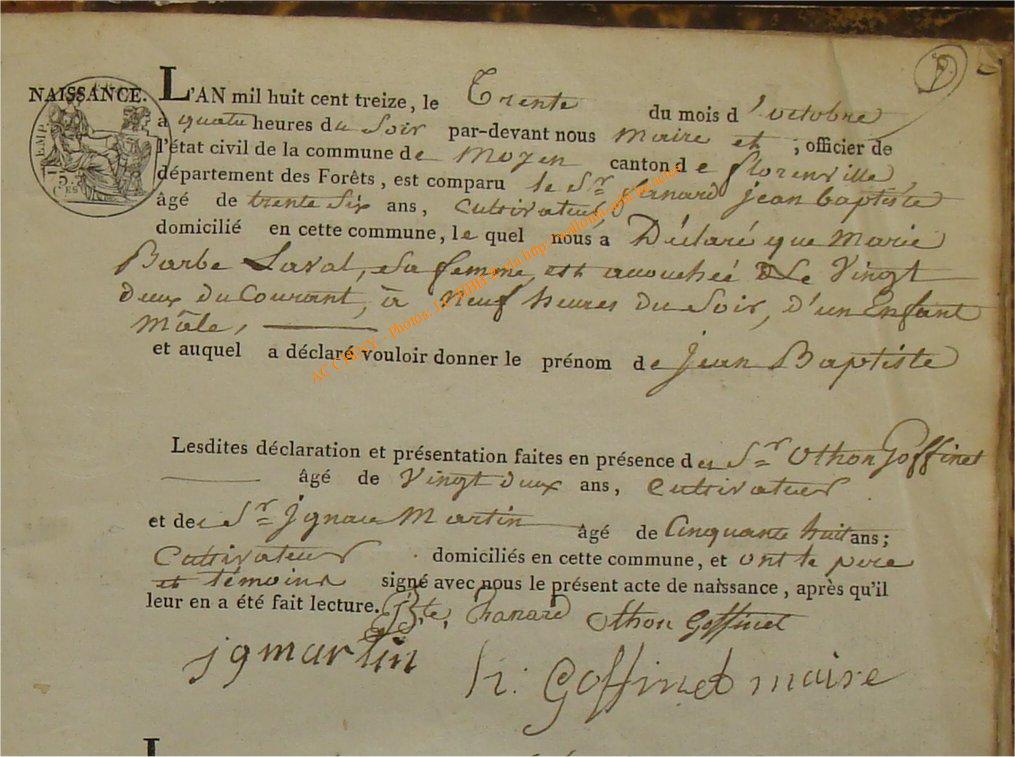 NAISSANCE. L'AN mil huit cent treize, le Trente du mois d'octobre
a quatre heures du Soir par-devant nous maire et, officier de
l'état civil de la commune de Moyen canton de florenville
département des Forêts, est comparu le Sr. hanard jean baptiste
âgé de trente Six ans, Cultivateur,
domicilié en cette commune, le quel nous a Déclaré que Marie
Barbe Laval, Sa femme, est acouchéé Le Vingt
deux du Courant, à Neuf heures du Soir, d'un Enfant
Mâle,
et auquel a déclaré vouloir donner le prénom de jean Baptiste
Lesdites déclaration et présentation faites en présence des Sr. Othon Goffinet
âgé de Vingt deux ans, Cultivateur
et de Sr. Jgnace Martin âgé de Cinquante huit ans;
Cultivateur domiciliés en cette commune, et ont le pere
et témoins signé avec nous le présent acte de naissance, après qu'il
leur en a été fait lecture. Bte. hanard Othon Goffinet
jgmartin h: Goffinet maire